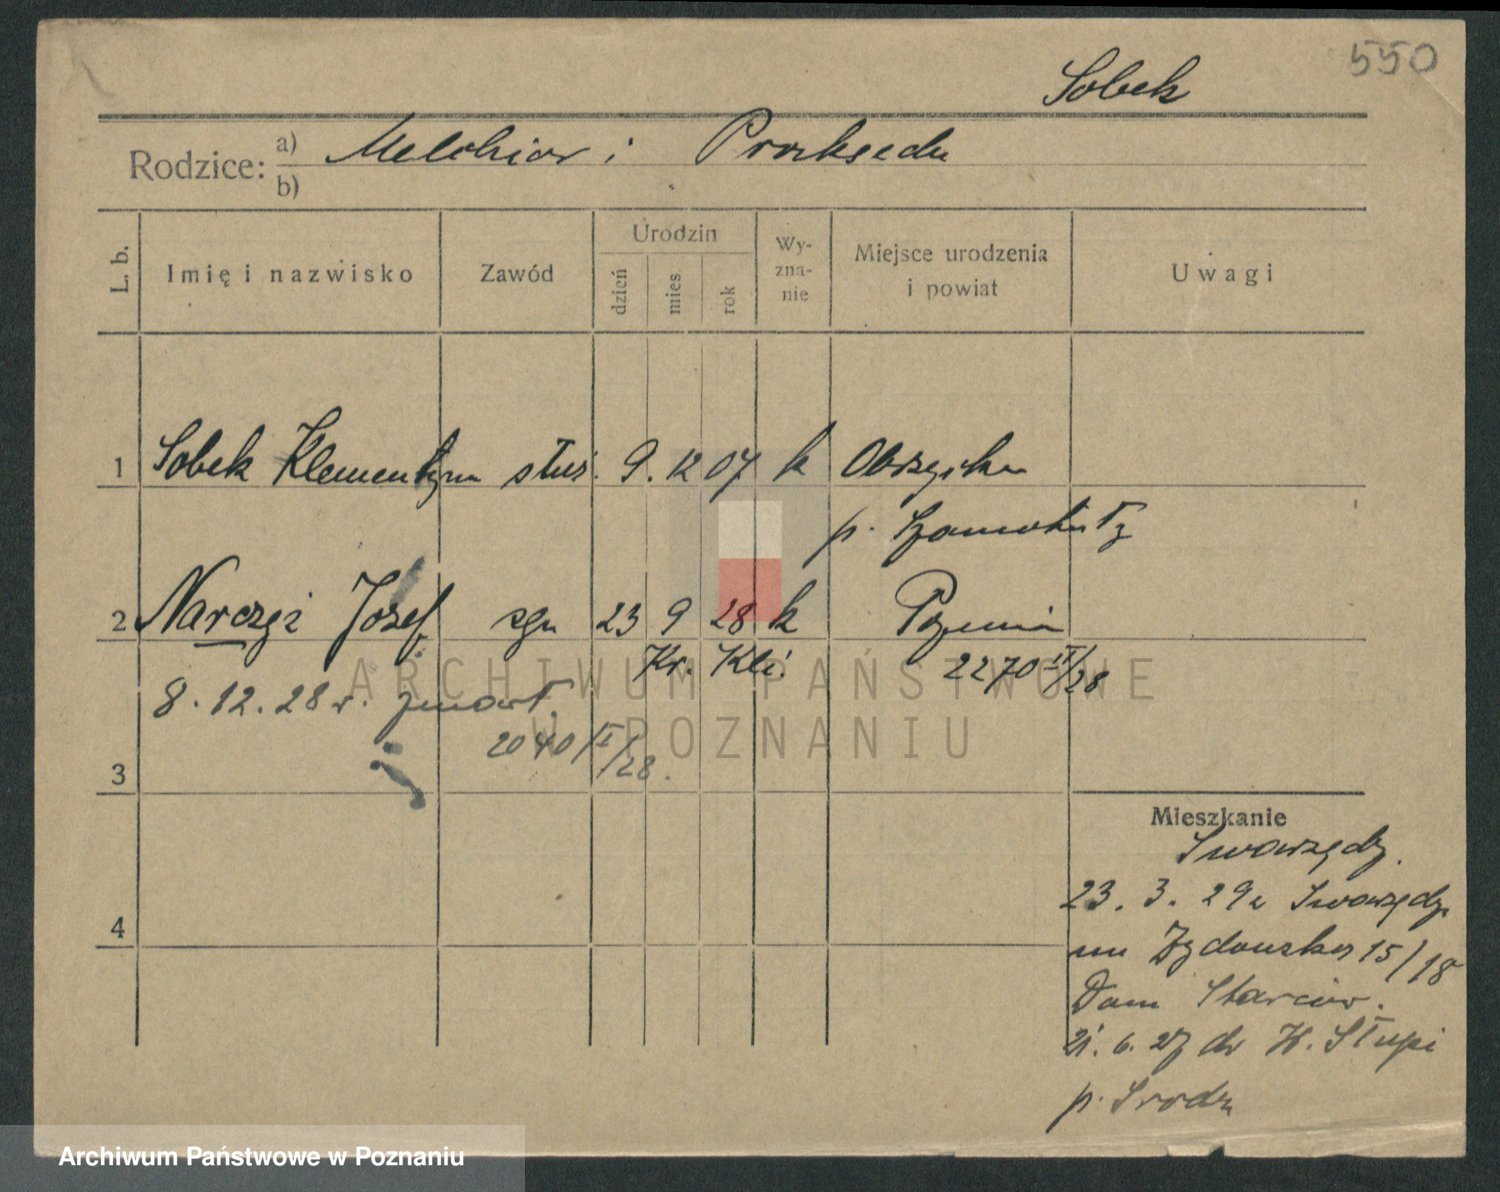 550
Sobek
Rodzice: a) Melchior i Prakseda
b)
L. b. Imię i nazwisko Zawód Urodzin dzień mies. rok Wy-zna-nie Miejsce urodzenia i powiat Uwagi
1 Sobek Klementyna służ. 9. 12 07 k Obrzycko
p. Szamotuły
2 Narczyż Józef syn 23 9 28 k Poznań
Kr. Kli. 2270 II/28
8. 12. 28 r. zmarł.
2040/I/28.
3
Mieszkanie
Swarzędz.
23. 3. 29 Swarzędz
4
15/18
Dom Starców.
21. 6. do Słupi
p. Środa
ARCHIWUM PAŃSTWOWE
W POZNANIU
Archiwum Państwowe w Poznaniu